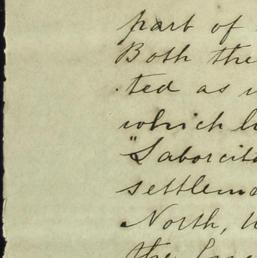 part of
Both the
ted as
which
"Laborcita
settleme
North,
the